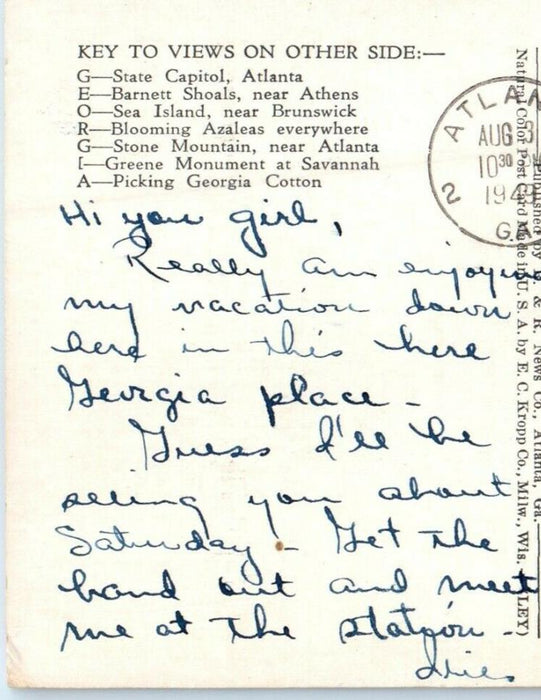 KEY TO VIEWS ON OTHER SIDE:—
G—State Capitol, Atlanta
E—Barnett Shoals, near Athens
O—Sea Island, near Brunswick
R—Blooming Azaleas everywhere
G—Stone Mountain, near Atlanta
I—Greene Monument at Savannah
A—Picking Georgia Cotton
Hi you girl,
Really am enjoying
my vacation down
here in this here
Georgia place -
Guess I'll be
seeing you about
Saturday - Get the
band out and meet
me at the station -
ATLAN
AUG 3
10 30
194
GA
2
Natural Color Post Card Made in U. S. A. by E. C. Kropp Co., Milw., Wis.
& R. News Co., Atlanta, Ga.